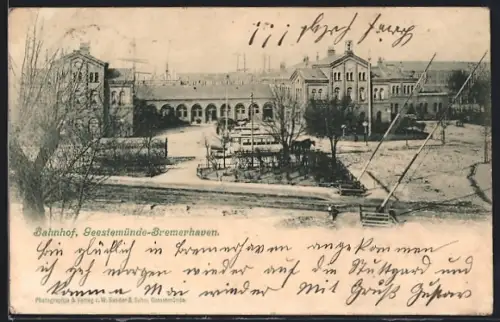 Bahnhof, Geestemünde-Bremerhaven.
Bin glücklich in Bremerhaven angekommen
ich geh morgen wieder auf die Stuttgard und
komme Mai wieder Mit Gruß Gustav
Photographie & Verlag v. W. Sander & Sohn, Geestemünde.